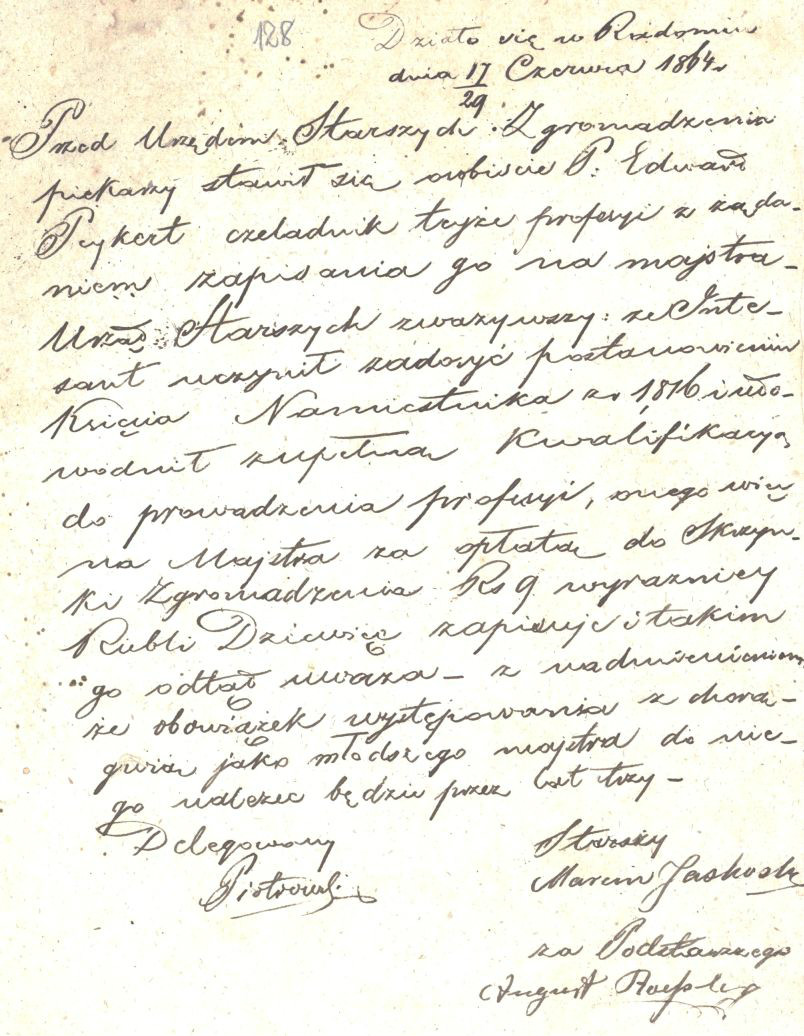 128
Działo się w Radomiu
dnia 17/29 Czerwca 1864 r
Przed Urzędem Starszych Zgromadzenia
piekarzy stawił się osobiscie P. Edward
Peykert czeladnik teyże profesyi z żąda-
niem zapisania go na majstra –
Urząd Starszych zważywszy: że Inte-
sant uczynił zadosyć postanowieniu
Księcia Namiestnika z r 1816 i udo-
wodnił zupełną Kwalifikacyą
do prowadzenia profesyi, onego więc
na Majstra za opłatą do Skrzyn-
ki Zgromadzenia Rs 9 wyrazniey
Rubli Dziewięc zapisuje i takim
go odtąd uważa – z nadmienieniem
że obowiązek występowania z chorą-
gwią jako młodszego majstra do nie-
go należec będzie przez lat trzy –
Delegowany
Piotrowski
Starszy
Marcin Jaskoski
za Podstarszego
August